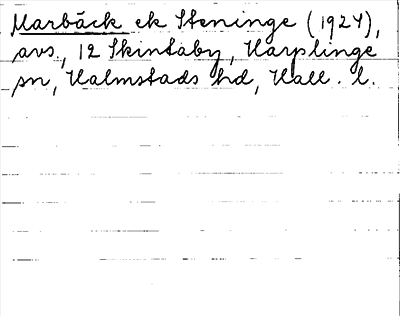 Marbäck ek Steninge (1924),
avs., 12 Skintaby, Harplinge
sn, Halmstads hd, Hall. l.